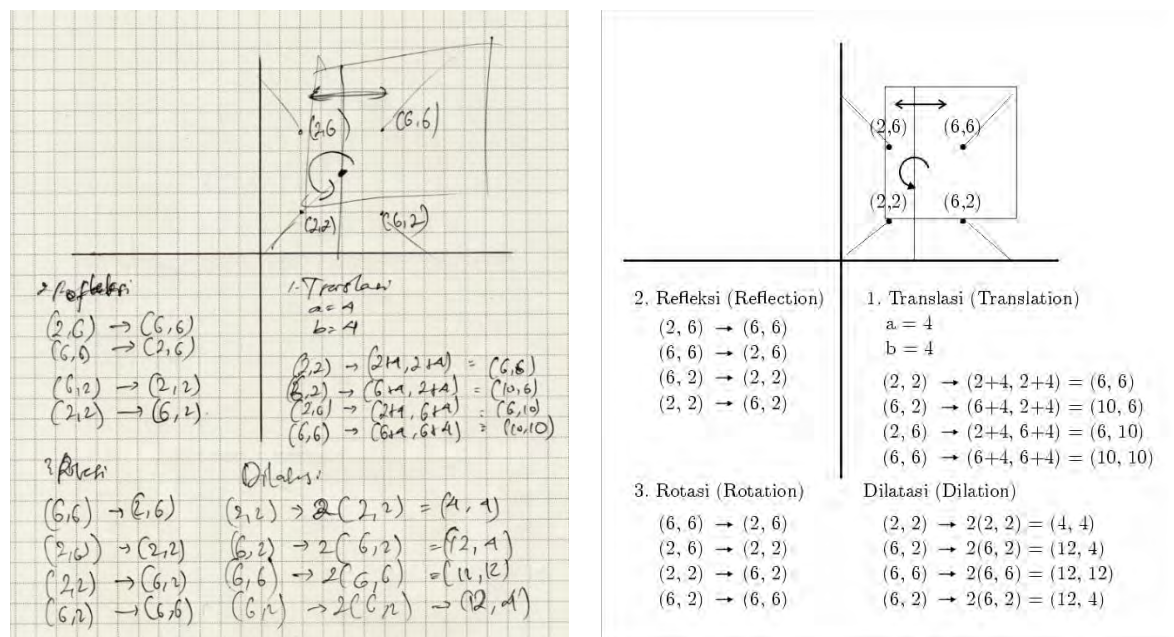 (2,6) (6,6)
(2,2) (6,2)
2. Refleksi
(2,6) → (6,6)
(6,6) → (2,6)
(6,2) → (2,2)
(2,2) → (6,2)
1. Translasi
a = 4
b = 4
(2,2) → (2+4, 2+4) = (6,6)
(6,2) → (6+4, 2+4) = (10,6)
(2,6) → (2+4, 6+4) = (6,10)
(6,6) → (6+4, 6+4) = (10,10)
3. Rotasi
(6,6) → (2,6)
(2,6) → (2,2)
(2,2) → (6,2)
(6,2) → (6,6)
Dilatasi
(2,2) → 2(2,2) = (4,4)
(6,2) → 2(6,2) = (12,4)
(6,6) → 2(6,6) = (12,12)
(6,2) → 2(6,2) → (12,4)
(2,6) (6,6)
(2,2) (6,2)
2. Refleksi (Reflection)
(2, 6) → (6, 6)
(6, 6) → (2, 6)
(6, 2) → (2, 2)
(2, 2) → (6, 2)
1. Translasi (Translation)
a = 4
b = 4
(2, 2) → (2+4, 2+4) = (6, 6)
(6, 2) → (6+4, 2+4) = (10, 6)
(2, 6) → (2+4, 6+4) = (6, 10)
(6, 6) → (6+4, 6+4) = (10, 10)
3. Rotasi (Rotation)
(6, 6) → (2, 6)
(2, 6) → (2, 2)
(2, 2) → (6, 2)
(6, 2) → (6, 6)
Dilatasi (Dilation)
(2, 2) → 2(2, 2) = (4, 4)
(6, 2) → 2(6, 2) = (12, 4)
(6, 6) → 2(6, 6) = (12, 12)
(6, 2) → 2(6, 2) = (12, 4)